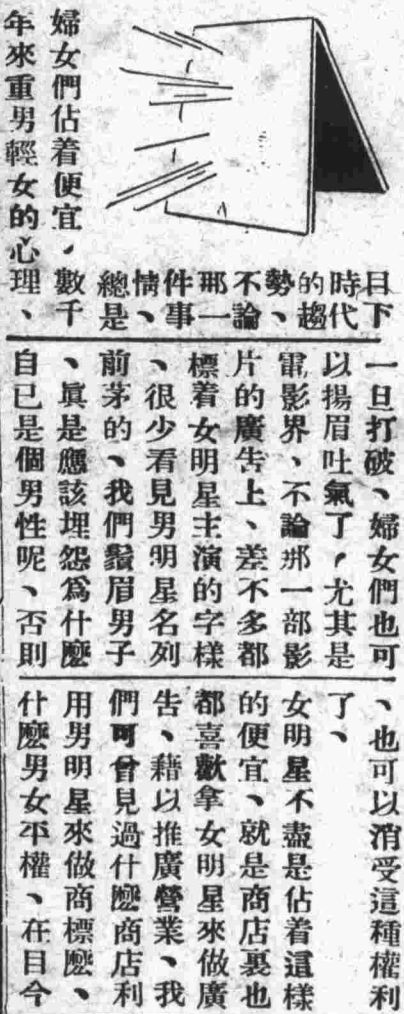 目下
時代
的趨
勢、
不論
那一
件事
情、
總是
婦女們佔着便宜，數千
年來重男輕女的心理、
一旦打破、婦女們也可
以揚眉吐氣了，尤其是
電影界、不論那一部影
片的廣告上、差不多都
標着女明星主演的字樣
、很少看見男明星名列
前茅的、我們鬚眉男子
、眞是應該埋怨爲什麽
自已是個男性呢、否則
、也可以消受這種權利
了、
女明星不盡是佔着這樣
的便宜、就是商店裏也
都喜歡拿女明星來做廣
告、藉以推廣營業、我
們可曾見過什麽商店利
用男明星來做商標麽、
什麽男女平權、在目今